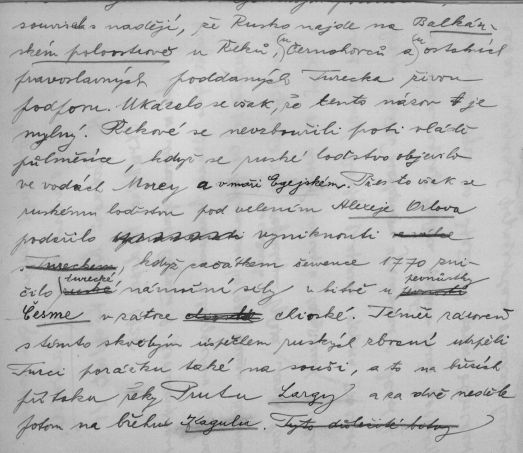 souvisel s nadějí, že Rusko najde na Balkán-
ském poloostrově u Řeků, u Černohorců a u ostatních
pravoslavných poddaných Turecka živou
podporu. Ukázalo se však, že tento názor je
mylný. Řekové se nevzbouřili proti vládě
půlměsíce, když se ruské loďstvo objevilo
ve vodách Morey a v moři Egejském. Přes to však se
ruskému loďstvu pod velením Alexeje Orlova
podařilo vyniknouti
s Tureckem, když začátkem července 1770 zni-
čilo turecké ruské námořní síly v bitvě u pevnůstky
Česme v zátoce chioské. Téměř zároveň
s tímto skvělým úspěchem ruských zbraní utrpěli
Turci porážku také na souši, a to na březích
přítoku řeky Prutu Largy a za dvě neděle
potom na břehu Kagulu. Tyto důležité boby